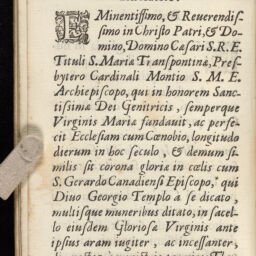 EMinentißimo, & Reuerendis-
simo in Christo Patri, & Do-
mino, Domino Cæsari S. R. E.
Tituli S. Mariæ Transpontinæ, Pres-
bytero Cardinali Montio S. M. E.
Archiepiscopo, qui in honorem Sanc-
tissimæ Dei Genitricis, semperque
Virginis Mariæ fundauit, ac perfe-
cit Ecclesiam cum Cœnobio, longitudo
dierum in hoc seculo, & demum si-
milis sit corona gloriæ in cœlis cum
S. Gerardo Canadiensi Episcopo, qui
Diuo Georgio Templo à se dicato,
multisque muneribus ditato, in sacel-
lo eiusdem Gloriosæ Virginis ante
ipsius aram iugiter, ac incessanter,